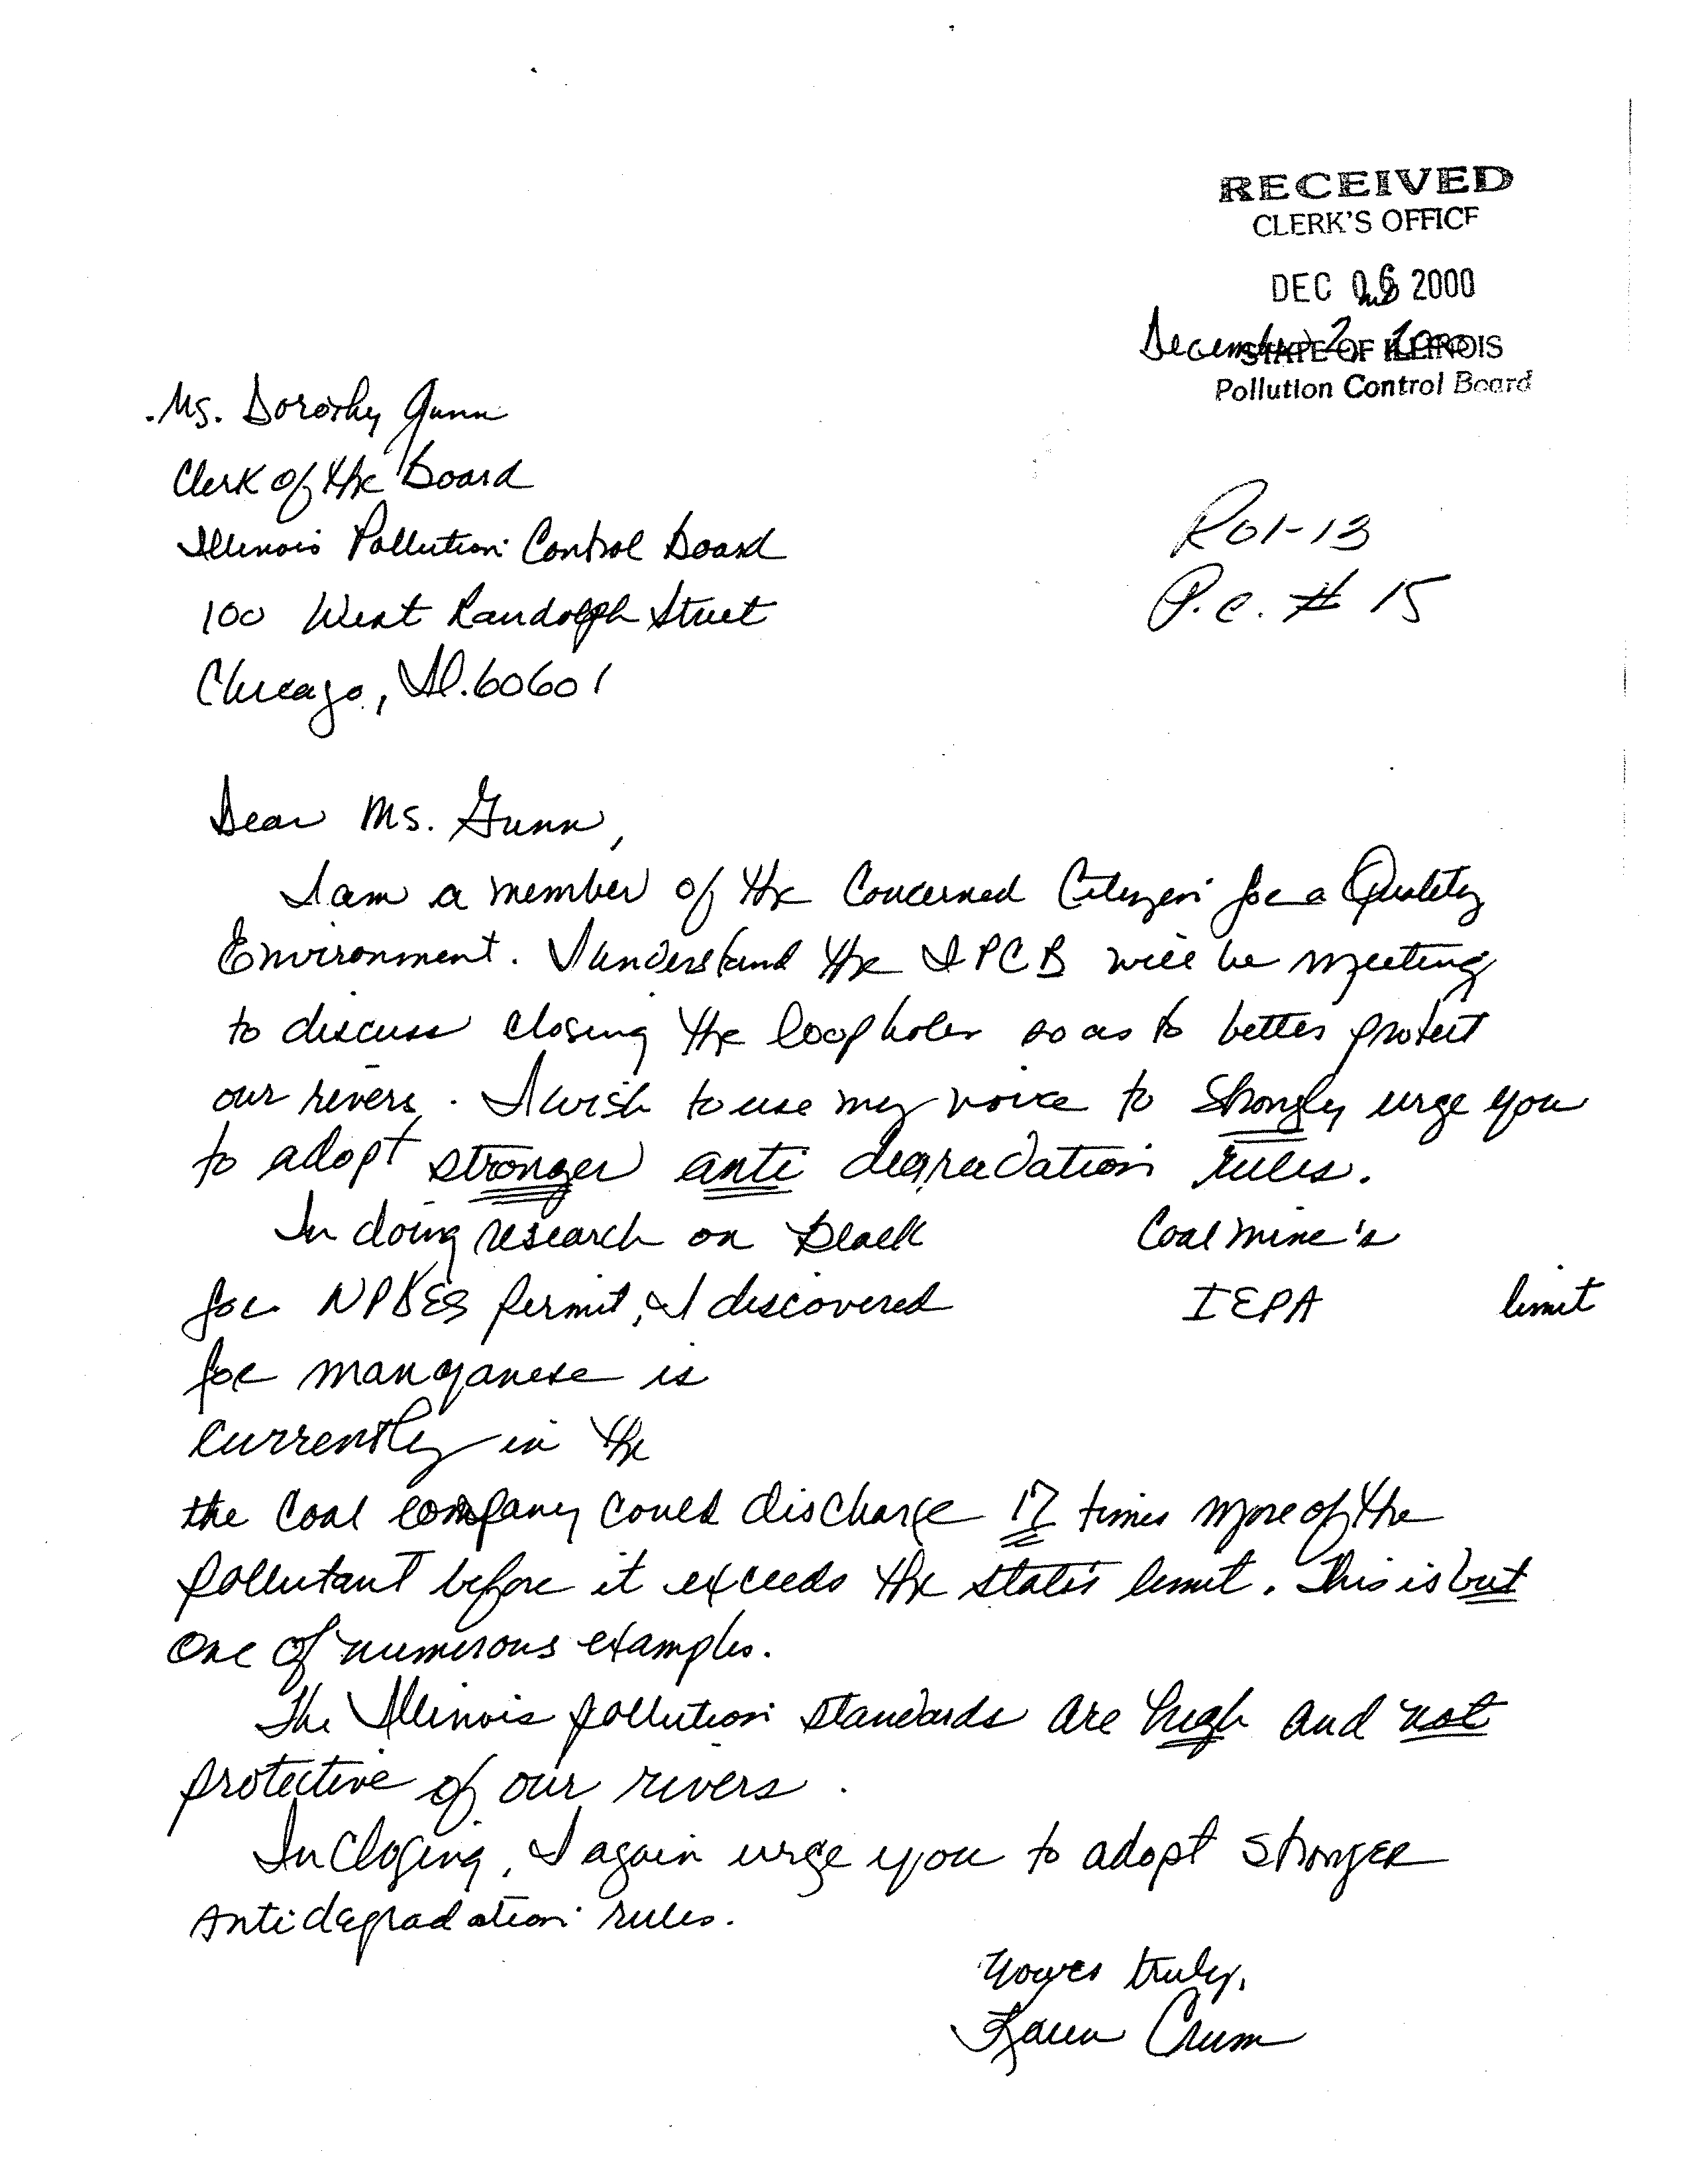 RECEIVED
CLERK'S OFFICE
DEC 06 2000
December 2, 2000
STATE OF ILLINOIS
Pollution Control Board
Ms. Dorothy Gunn
Clerk of the Board
Illinois Pollution Control Board
100 West Randolph Street
Chicago, Il. 60601
R01-13
P.C. # 15
Dear Ms. Gunn,
I am a member of the Concerned Citizen for a Quality
Environment. I understand the IPCB will be meeting
to discuss closing the loopholes so as to better protect
our rivers. I wish to use my voice to strongly urge you
to adopt stronger anti degradation rules.
In doing research on Black Coal mine's
for NPDES permit, I discovered IEPA limit
for manganese is
currently in the
the coal company could discharge 17 times more of the
pollutant before it exceeds the state's limit. This is but
one of numerous examples.
The Illinois pollution standards are high and not
protective of our rivers.
In closing, I again urge you to adopt stronger
antidegradation rules.
Yours truly,
Karen Crum